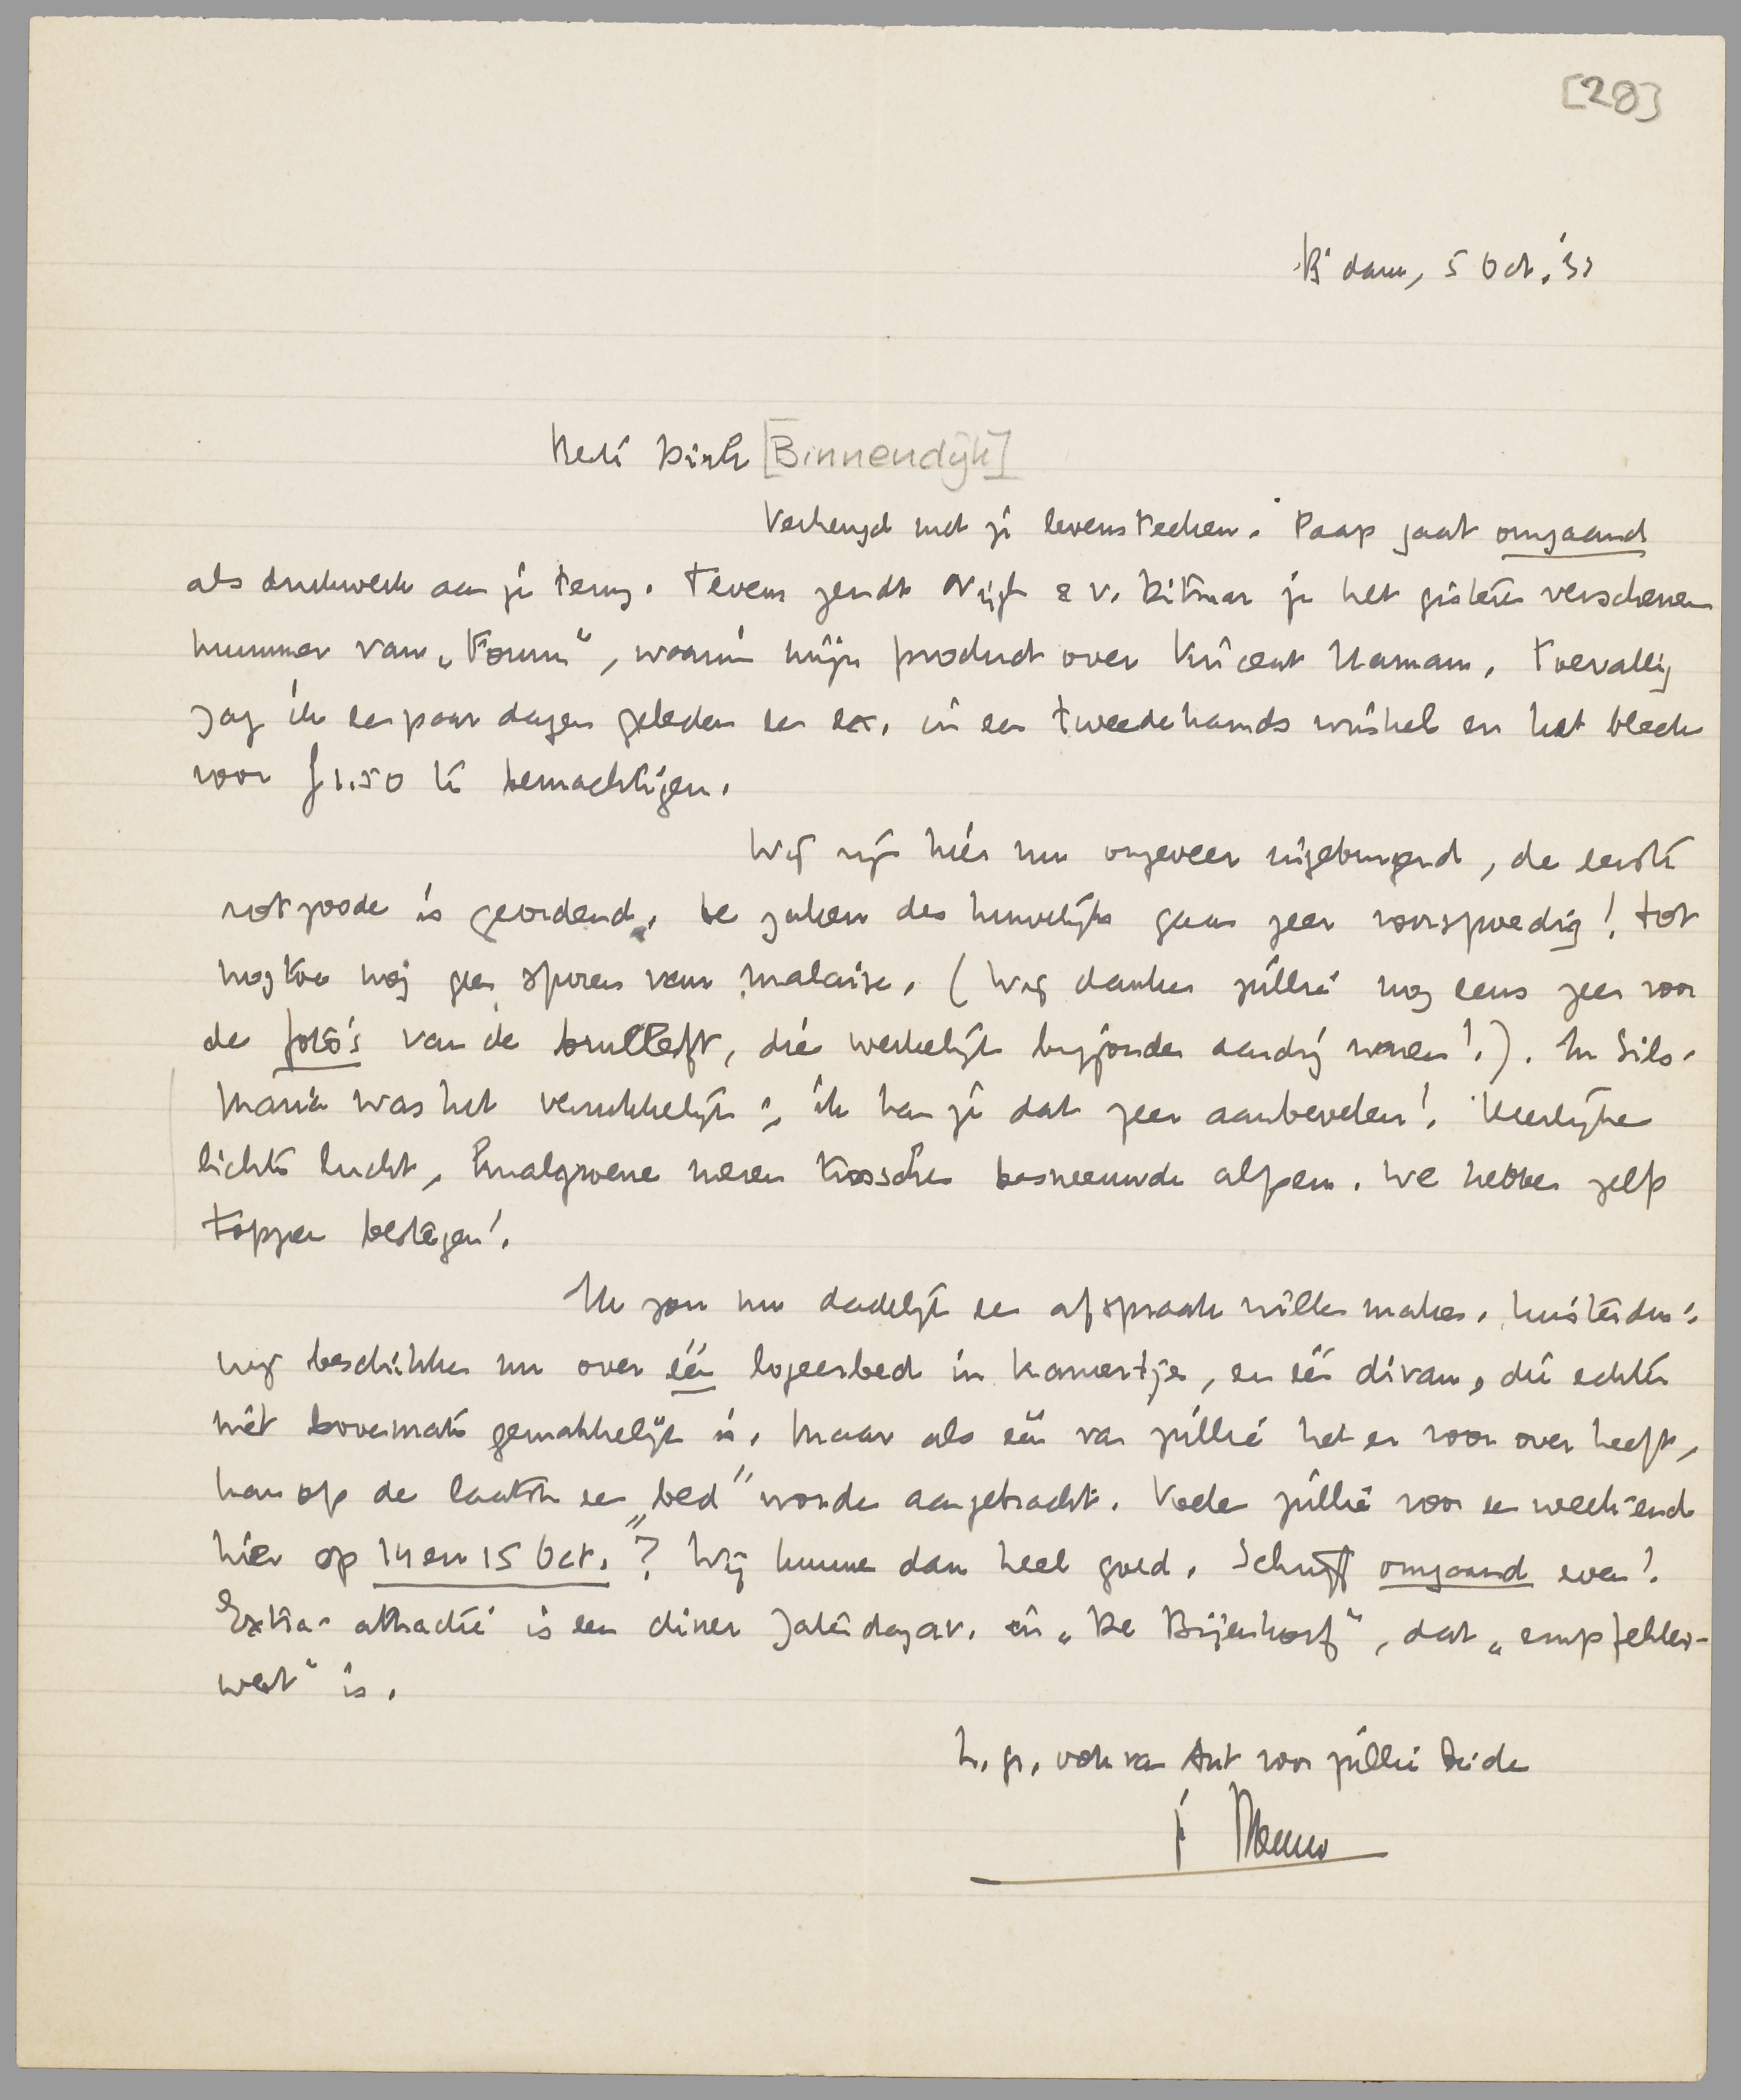 [28]
R'dam, 5 Oct. '33
Beste Dick [Binnendijk]
Verheugd met je levensteeken. Paap gaat omgaand
als drukwerk aan je terug. Tevens zendt Nijgh & v. Ditmar je het gisteren verschenen
nummer van „Forum”, waarin mijn product over Vincent Haman. Toevallig
zag ik een paar dagen geleden een ex. in een tweedehands winkel en het bleek
voor ƒ 1.50 te bemachtigen.
Wij zijn hier nu ongeveer ingeburgerd, de eerste
rotzoode is geordend. De zaken des huwelijks gaan zeer voorspoedig! Tot
nog toe nog geen sporen van malaise. (Wij danken jullie nog eens zeer voor
de foto's van de bruiloft, die werkelijk bijzonder aardig waren!). In Sils-
Maria was het verrukkelijk; ik kan je dat zeer aanbevelen! Heerlijke
lichte lucht, smalgroene meren tusschen besneeuwde alpen. We hebben zelfs
toppen bestegen!
Ik zou nu dadelijk een afspraak willen maken. Luister dus:
wij beschikken nu over één logeerbed in kamertje, en één divan, die echter
niet bovenmate gemakkelijk is. Maar als één van jullie het er voor over heeft,
kan op de laatste een „bed” worden aangebracht. Voelen jullie voor een weekend
hier op 14 en 15 Oct.? Wij kunnen dan heel goed. Schrijf omgaand even!
Extra-attractie is een diner Zaterdagav. in „De Bijenkorf”, dat „empfehlens-
wert” is.
h. gr., ook van Ant voor jullie beide
je Menno